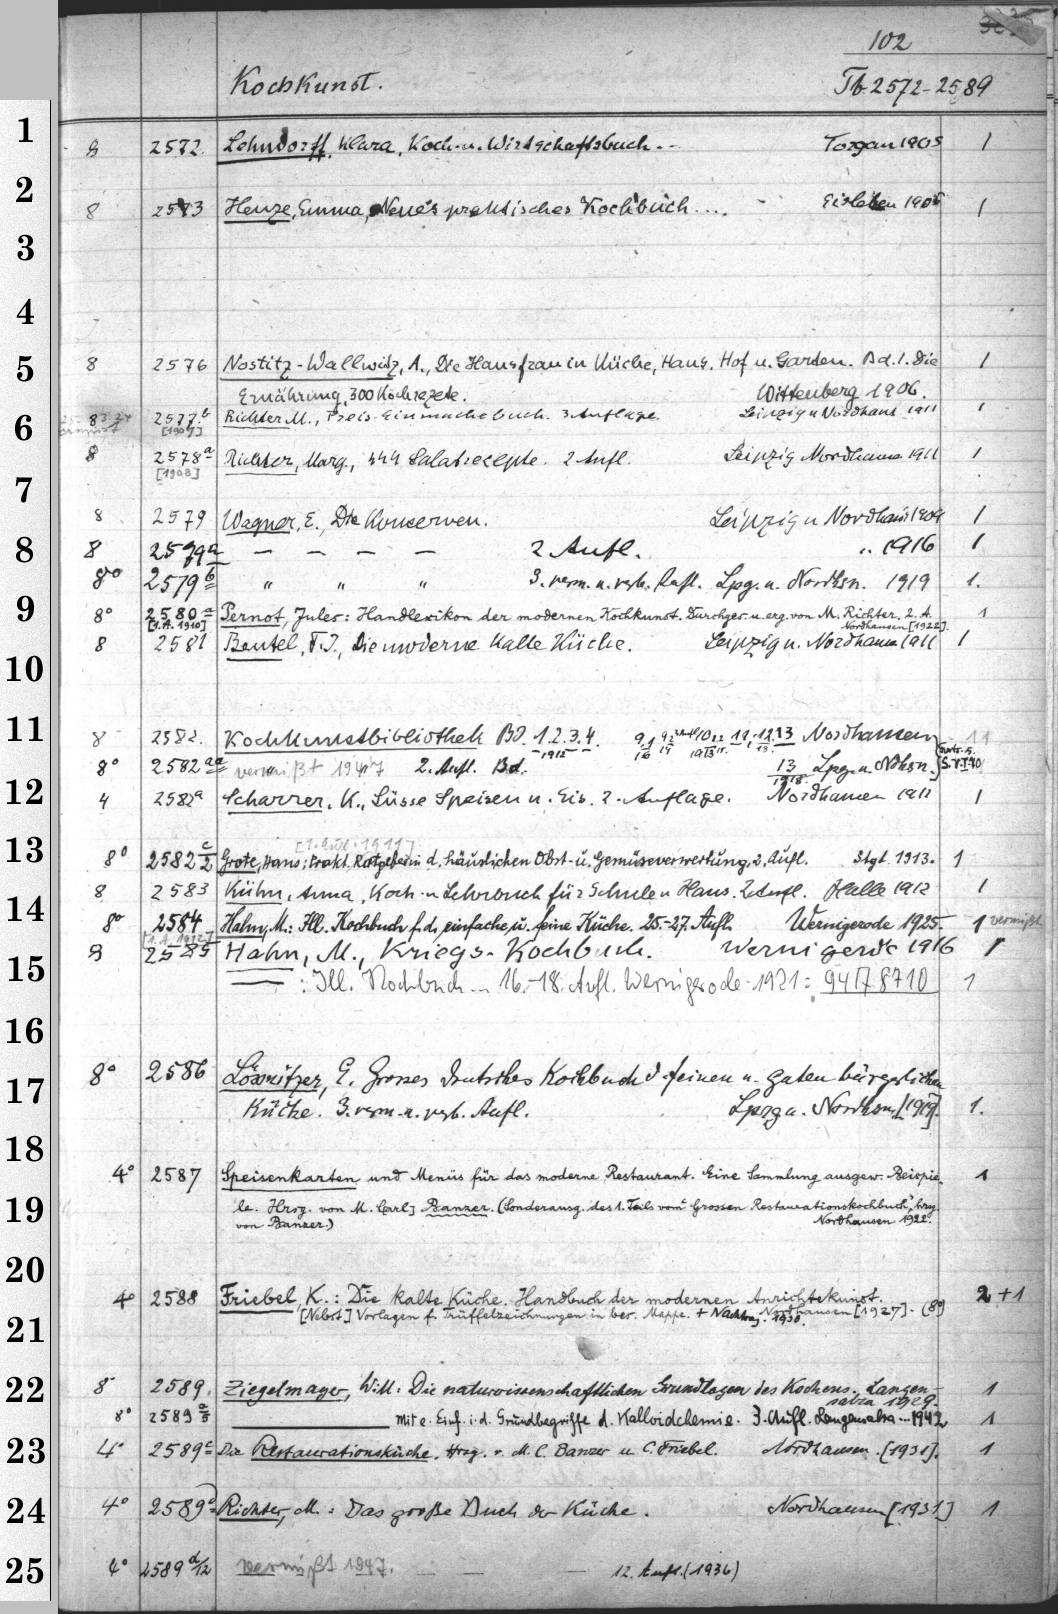 102
Kochkunst. Tb. 2572-2589
1
8 2572. Lehndorff, Klara, Koch- u. Wirtschaftsbuch... Torgau 1905 1
2
8 2573 Henze, Emma, Neues praktisches Kochbuch.... Eisleben 1905 1
3
4
5
8 2576 Nostitz-Wallwitz, A., Die Hausfrau in Küche, Haus, Hof u. Garten. Bd. 1. Die 1
Ernährung, 300 Kochrezepte. Wittenberg 1906.
6
8 2577 b Richter M., Preis-Einmachebuch. 3 Auflage. Leipzig u Nordhaus. 1911 1
[1907]
8 2578 a Richter, Marg., 444 Salatrezepte. 2 Aufl. Leipzig Nordhausen 1911 1
[1908]
7
8 2579 Wagner, E., Die Konserven. Leipzig u Nordhaus 1909 1
8
8 2579 a — — — — 2 Aufl. „ 1916 1
8° 2579 b „ „ „ 3. verm. u. verb. Aufl. Lpg. u. Nordhsn. 1919 1.
9
8° 2580 a Pernot, Jules: Handlexikon der modernen Kochkunst. Durchges. u. erg. von M. Richter. 2. A. 1
[1. A. 1910] Nordhausen [1922].
8 2581 Beutel, F. J., Die moderne kalte Küche. Leipzig u. Nordhausen 1911 1
10
11
8 2582. Kochkunstbibliothek Bd. 1. 2. 3. 4. Nordhausen 11
1912
8° 2582 aa vermißt 1947 2. Aufl. Bd. 13 Lpg. u. Ndhsn.
1918
12
4 2582 a Scharrer, K., Süsse Speisen u. Eis. 2. Auflage. Nordhausen 1911 1
13
[1. Aufl. 1911]
8° 2582 c/2 Grote, Hans: Prakt. Ratgeber in d. häuslichen Obst- u. Gemüseverwertung. 2. Aufl. Stgt. 1913. 1
8 2583 Kühn, Anna, Koch- u Lehrbuch für Schule u Haus. 2 Aufl. Halle 1912 1
14
8° 2584 Hahn, M.: Ill. Kochbuch f. d. einfache u. feine Küche. 25-27. Aufl. Wernigerode 1925. 1 vermißt
8 2585 Hahn, M., Kriegs-Kochbuch. Wernigerode 1916 1
15
: Ill. Kochbuch ... 16.-18. Aufl. Wernigerode 1921: 94 178710 1
16
17
8° 2586 Lössnitzer, E. Grosses Deutsches Kochbuch d feinen u. guten bürgerlichen
Küche. 3. verm. u. verb. Aufl. Lpzg u. Nordhsn. [1919]. 1.
18
4° 2587 Speisenkarten und Menüs für das moderne Restaurant. Eine Sammlung ausgew. Beispie- 1
19
le. Hrsg. von M. Carl] Banzer. (Sonderausg. des 1. Teils vom "Grossen Restaurationskochbuch", hrsg.
von Banzer.) Nordhausen 1922.
20
4° 2588 Friebel, K.: Die kalte Küche. Handbuch der modernen Anrichtekunst. 2+1
[Nebst] Vorlagen f. Trüffelzeichnungen in bes. Mappe. + Nachtrag. 1930. Nordhausen [1927]. (8°)
21
22
8° 2589. Ziegelmayer, Wilh: Die naturwissenschaftlichen Grundlagen des Kochens. Langen- 1
salza 1929.
8° 2589 a/5 mit e. Einf. i. d. Grundbegriffe d. Kolloidchemie. 3. Aufl. Langensalza ... 1942 1
23
4° 2589 c Die Restaurationsküche. Hrsg. v. M. C. Banzer u. C. Friebel. Nordhausen. [1931]. 1
24
4° 2589 d Richter, M.: Das große Buch der Küche. Nordhausen [1931] 1
25
4° 2589 d/12 vermißt 1947. — — — 12. Aufl. (1936)